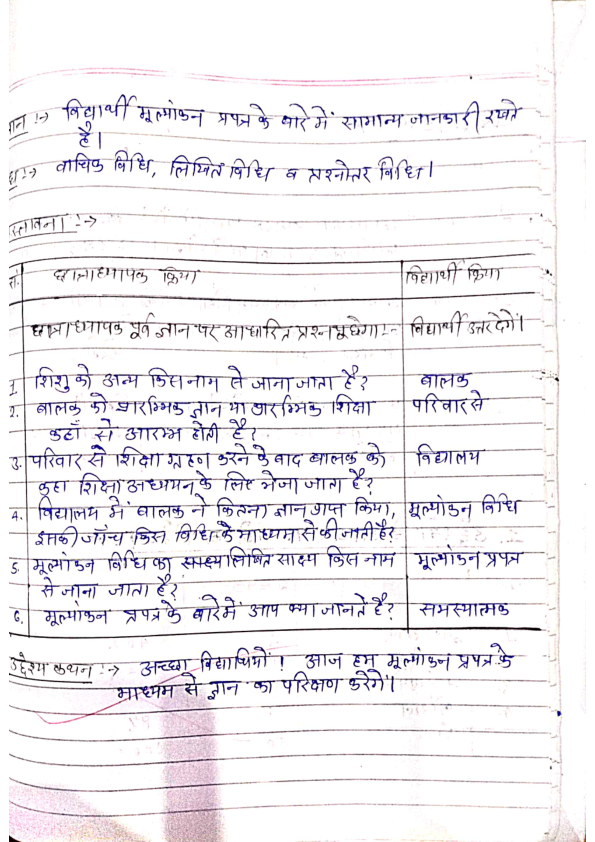 ान :-> विद्यार्थी मूल्यांकन प्रपत्र के बारे में सामान्य जानकारी रखते
है।
:-> वाचिक विधि, लिखित विधि व प्रश्नोतर विधि।
स्तावना :->
सं. छात्राध्यापक क्रिया विद्यार्थी क्रिया
छात्राध्यापक पूर्व ज्ञान पर आधारित प्रश्न पूछेगा:- विद्यार्थी उत्तर देगें।
1. शिशु को अन्य किस नाम से जाना जाता है? बालक
2. बालक को प्रारम्भिक ज्ञान या प्रारम्भिक शिक्षा परिवार से
कहाँ से आरम्भ होती है?
3. परिवार से शिक्षा ग्रहण करने के बाद बालक को विद्यालय
कहा शिक्षा अध्ययन के लिए भेजा जाता है?
4. विद्यालय में बालक ने कितना ज्ञान प्राप्त किया, मूल्यांकन विधि
इसकी जाँच किस विधि के माध्यम से की जाती है?
5. मूल्यांकन विधि का साक्ष्य किस नाम मूल्यांकन प्रपत्र
से जाना जाता है?
6. मूल्यांकन प्रपत्र के बारे में आप क्या जानते है? समस्यात्मक
द्देश्य कथन :-> अच्छा विद्यार्थियों! आज हम मूल्यांकन प्रपत्र के
माध्यम से ज्ञान का परिक्षण करेगें।